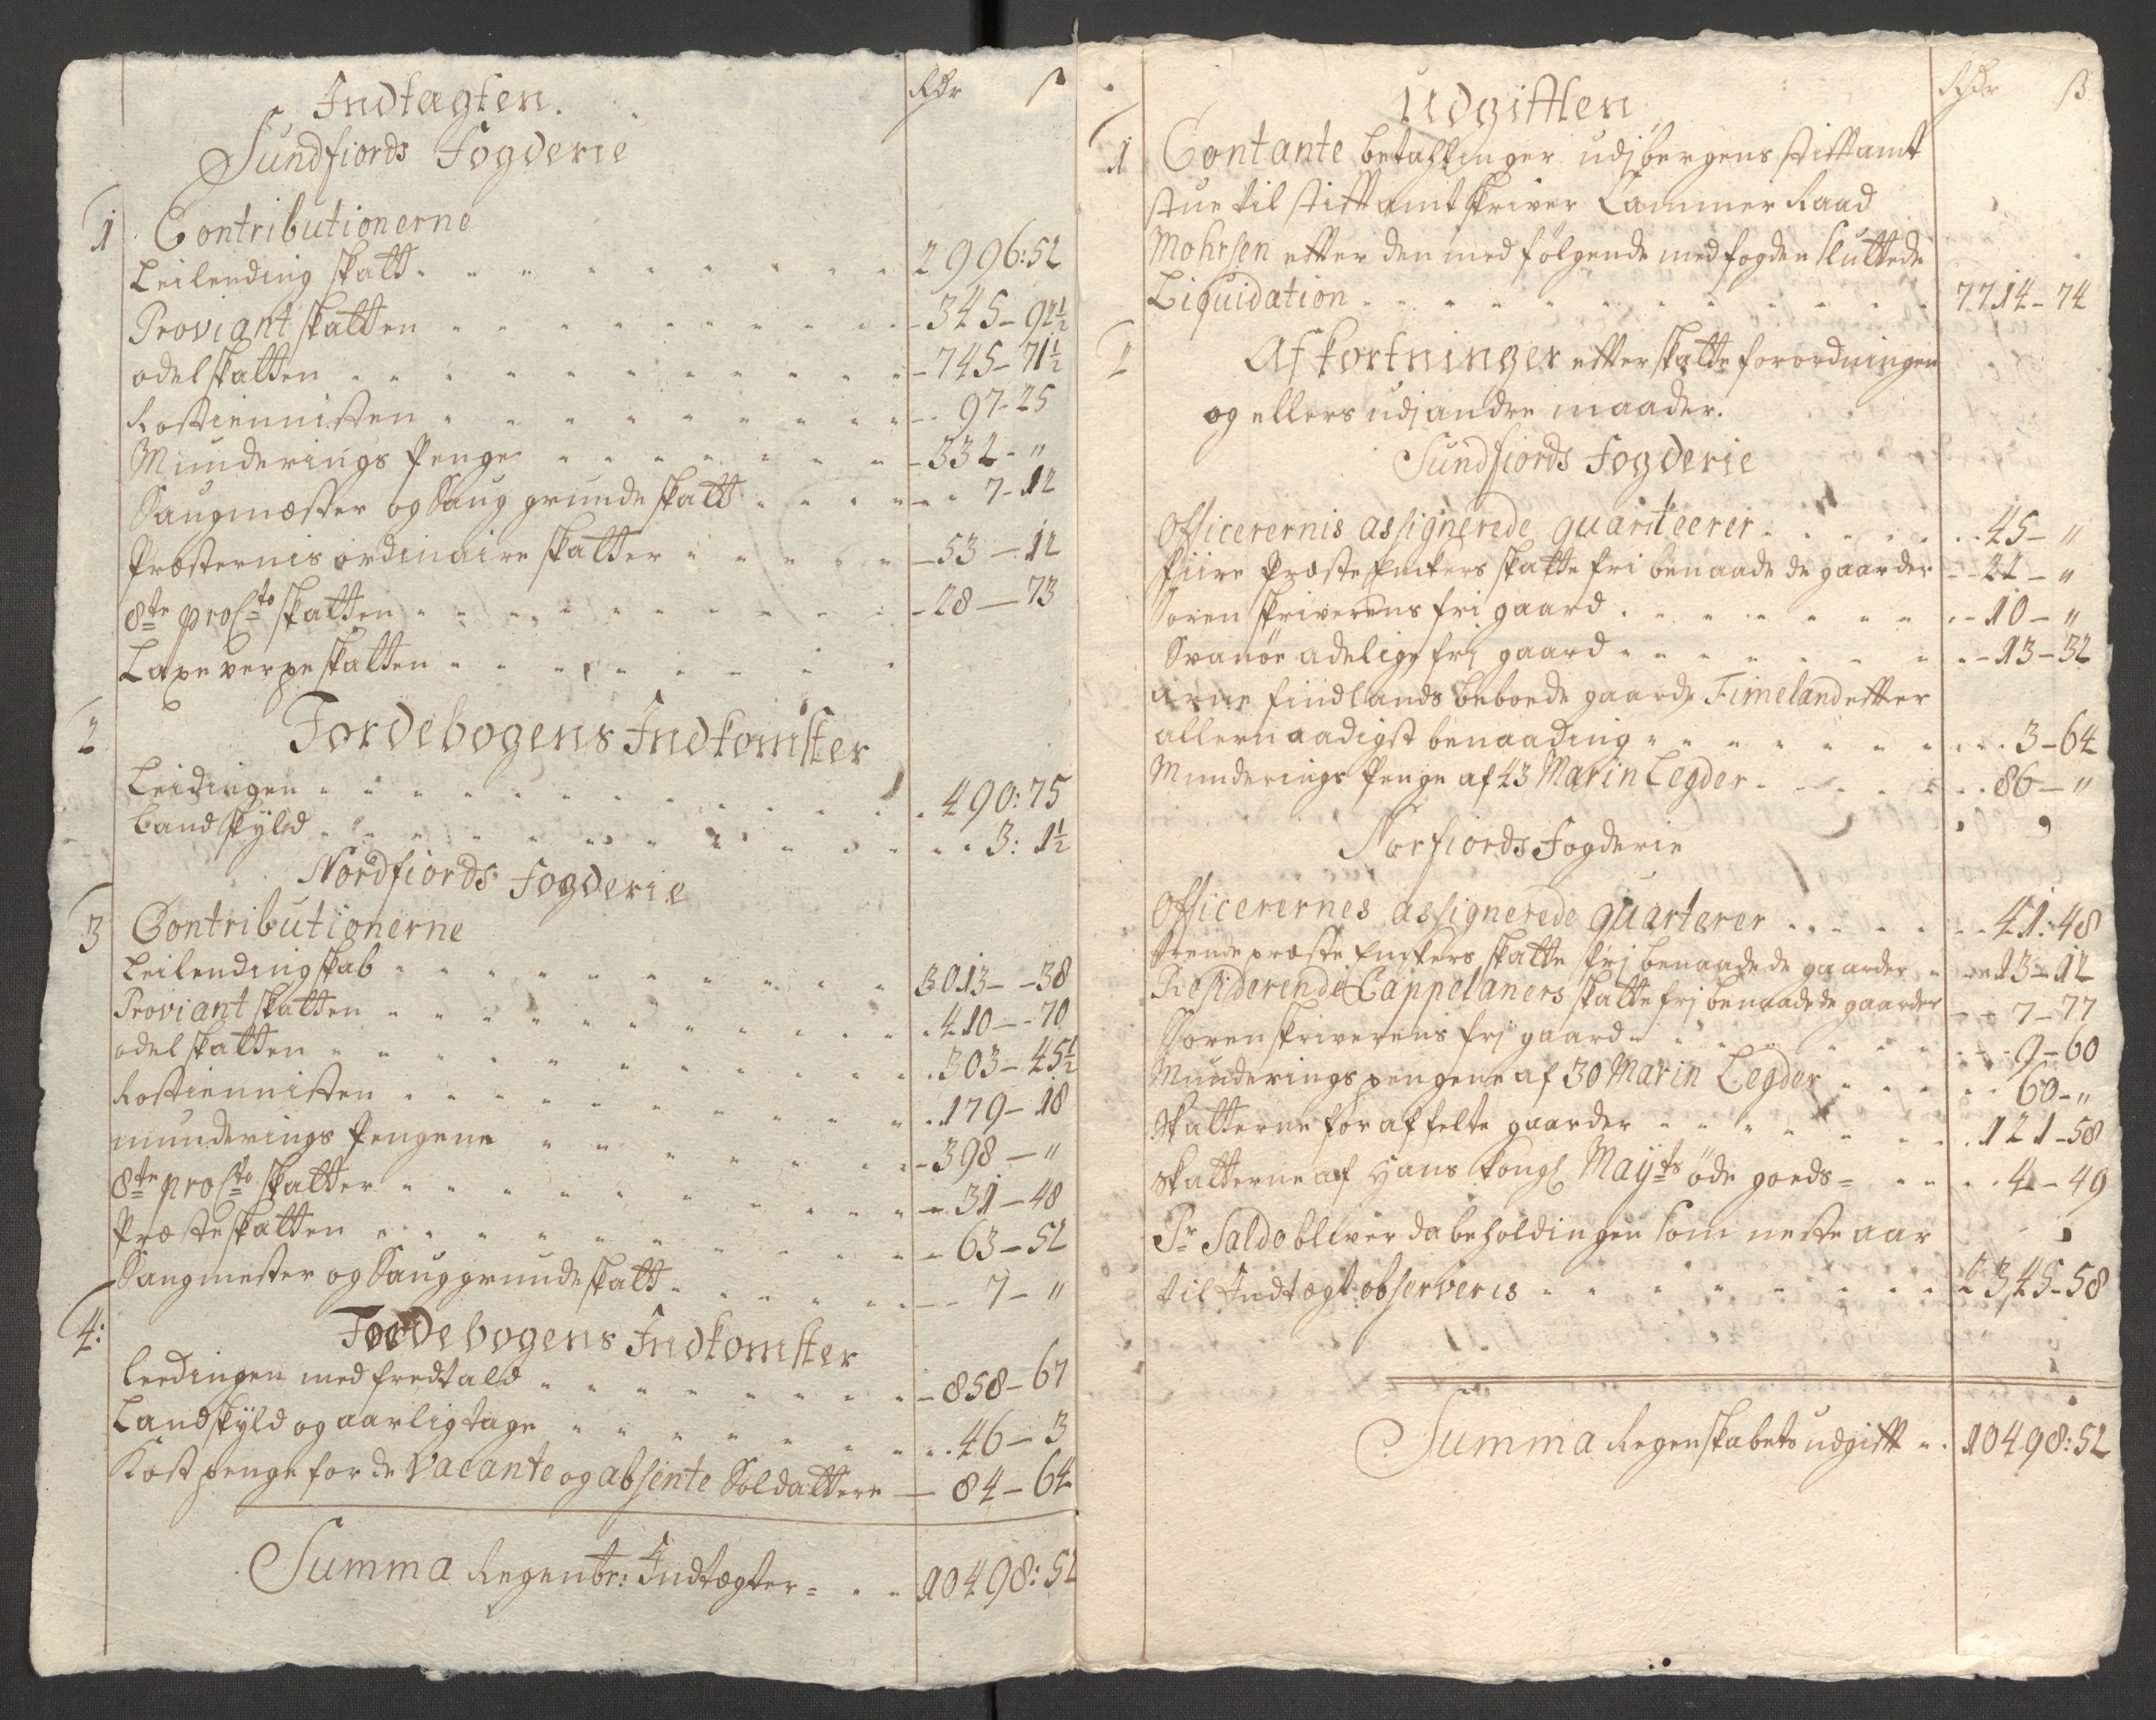 Indtagten.
Rdr ß
Sundfiords Fogderie
1 Contributionerne
Leilending skatt 2996:52
Proviant skatten 345-92½
odel skatten 745-71½
Rostiennisten 97-25
Munderings Penge 332-"
Saugmester og Saug grunde skatt 7-12
Præsternis ordinaire skatter 53-12
8te proCto skatten 28-73
Laxe verpe skatten
2 Jordebogens Indkomster
Leidingen 490:75
Landskyld 3:1½
Nordfiords Fogderie
3 Contributionerne
Leilending skab 3013-38
Proviant skatten 410-70
odel skatten 303-45½
Rostiennisten 179-18
munderings Pengene 398-"
8te proCto skatter 31-48
Præste skatten 63-52
Saugmester og Sauggrunde skatt 7-"
4: Jordebogens Indkomster
leedingen med fredtald 858-67
Landskyld og aarligtage 46-3
Kostpenge for de Vacante og absente Soldattere 84-64
Summa Regenbr: Indtægter 10498:52
Udgifften
Rdr ß
1 Contante betahlinger udj bergens stifftamt
stue til stifftamtskriver Cammer Raad
Mohrsen effter den med følgende med fogden sluttede
Liquidation 7714-74
2 Afkortninger effter skatte forordningen
og ellers udj andre maader.
Sundfiords Fogderie
Officerernis assignerede quarteerer 45-"
fiire Præste Enckers skatte fri benaadede gaarder 22-"
Soren skriverens fri gaard 10-"
Svanöe adelige frj gaard 13-32
Arne findlands beboede gaard Timeland effter
allernaadigst benaading 3-64
Munderings Penge af 43 Marin Legder 86-"
Norfiords Fogderie
Officerernes assignerede quarterer 41:48
trende præste Enckers skatte frj benaadede gaarder 13-12
Residerende Cappelaners skatte frj benaadede gaarder 7-77
Sorenskriverens frj gaard 9-60
Munderings pengene af 30 Marin Legder 60-"
Skatterne for affelte gaarder 121-58
Skatterne af Hans Kongl Mayts öde goeds 4-49
Pr Saldo bliver da beholdingen som neste aar
til Indtægt observeris 2345-58
Summa Regenskabets udgifft 10498:52